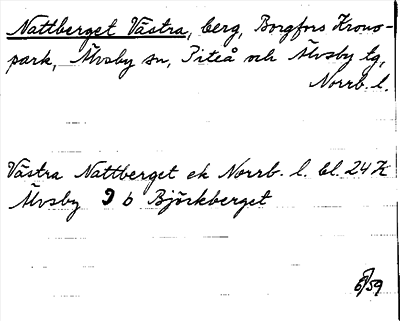 Nattberget Västra, berg, Borgfors Krono-
park, Älvsby sn, Piteå och Älvsby tg,
Norrb. l.
Västra Nattberget ek Norrb. l. bl. 24 K
Älvsby 9 b Björkberget
59